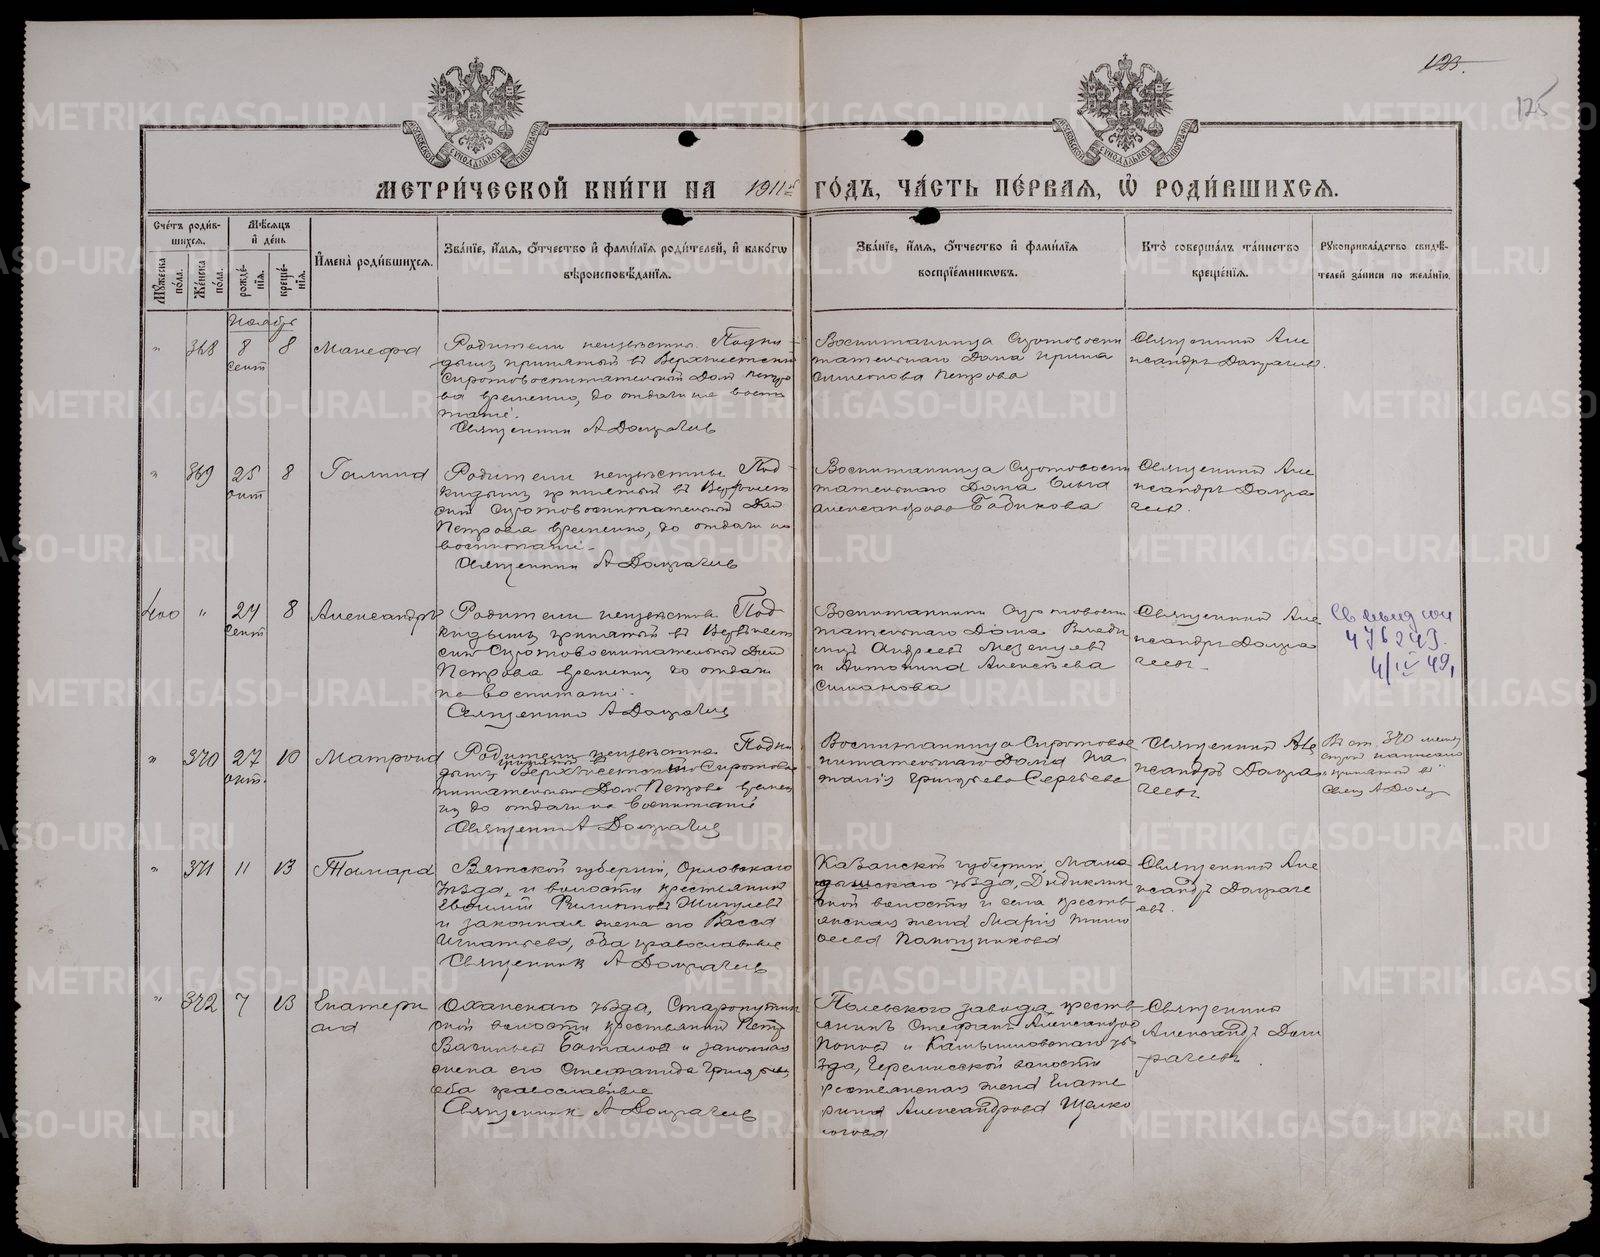 123.
125
МЕТРИ́ЧЕСКОЙ КНИ́ГИ НА 1911й ГО́ДЪ, ЧА́СТЬ ПЕ́РВАЯ, Ѡ РОДИ́ВШИХСЯ.
Сче́тъ роди́вшихся.
Му́жеска по́ла.
Же́нска по́ла.
Мѣ́сяцъ и҆ де́нь
рожде́нїя.
креще́нїя.
И҆мена̀ роди́вшихся.
Зва́нїе, и҆́мя, ѻ҆́тчество и҆ фами́лїя роди́телей, и҆ како́гѡ
вѣроисповѣ́данїя.
Зва́нїе, и҆́мя, ѻ҆́тчество и҆ фами́лїя
воспрїе́мниковъ.
Кто̀ соверша́лъ та́инство
креще́нїя.
Рукоприкла́дство свидѣ́-
телей за́писи по жела́нїю.
Ноябрь
" 368 8 сент 8
Манефа
Родители неизвестны. Подки-
дыш принятый въ Верхъисетский
Сиротовоспитательный Дом Петро
ва временно, до отдачи на воспи
танiе.
Священник А Домрачев
Воспитанница Сиротовоспи
тательнаго Дома Ирина
Симеонова Петрова
Священник Але
ксандръ Домрачев.
" 369 25 окт 8
Галина
Родители неизвестны Под-
кидыш принятый въ Верхъисет
ский Сиротовоспитательный Дом
Петрова временно, до отдачи на
воспитанiе.
Священник А Домрачев
Воспитанница Сиротовоспи
тательнаго Дома Ольга
Александрова Бабикова
Священник Але
ксандръ Домра
чевъ.
400 " 24 сент 8
Александръ
Родители неизвестны Под
кидыш принятый въ Верхъисет
ский Сиротовоспитательный Дом
Петрова временно, до отдачи
на воспитанiе.
Священник А Домрачев
Воспитанники Сиротовоспи
тательнаго Дома Влади
мiръ Андреев Мезенцевъ
и Антонина Алексѣева
Симанова
Священник Але
ксандръ Домра
чевъ.
476243.
4/IV 49,
" 370 27 окт. 10
Матрона
Родители неизвестны Подки
дыш принятый Верхъисетский Сиротовос
питательный Дом Петрова времен
но до отдачи на воспитанiе
Священник А Домрачев
Воспитанница Сиротовос
питательнаго Дома На
талiя Григорьева Сергѣева
Священник Але
ксандръ Домра
чевъ
Въ ст. 370 между
строк написано
"принятой въ"
Свящ А Домр
" 371 11 13
Тамара
Вятской губернiи, Орловскаго
уѣзда, и волости крестьянин
Евфимiй Филиппов Жигулевъ
и законная жена его Васса
Игнатьева, оба православные
Священник А Домрачев
Казанской губернiи, Мама
дышскаго уѣзда,
ской волости и села кресть
янская жена Марiя Тимо
феева Паношникова
Священник Але
ксандръ Домраче
въ.
" 372 7 13
Екатери
на
Оханскаго уѣзда, Старопутин
ской волости крестьянин Петр
Васильев Баталов и законная
жена его Степанида Григорьева
оба православные
Священник А Домрачев
Полевского завода, кресть-
янинъ Стефанъ Александров
Попов и Камышловскаго уѣ
зда, Черемисской волости
крестьянская жена Екате
рина Александрова Щелко
ногова
Священник
Александръ Дом
рачевъ.